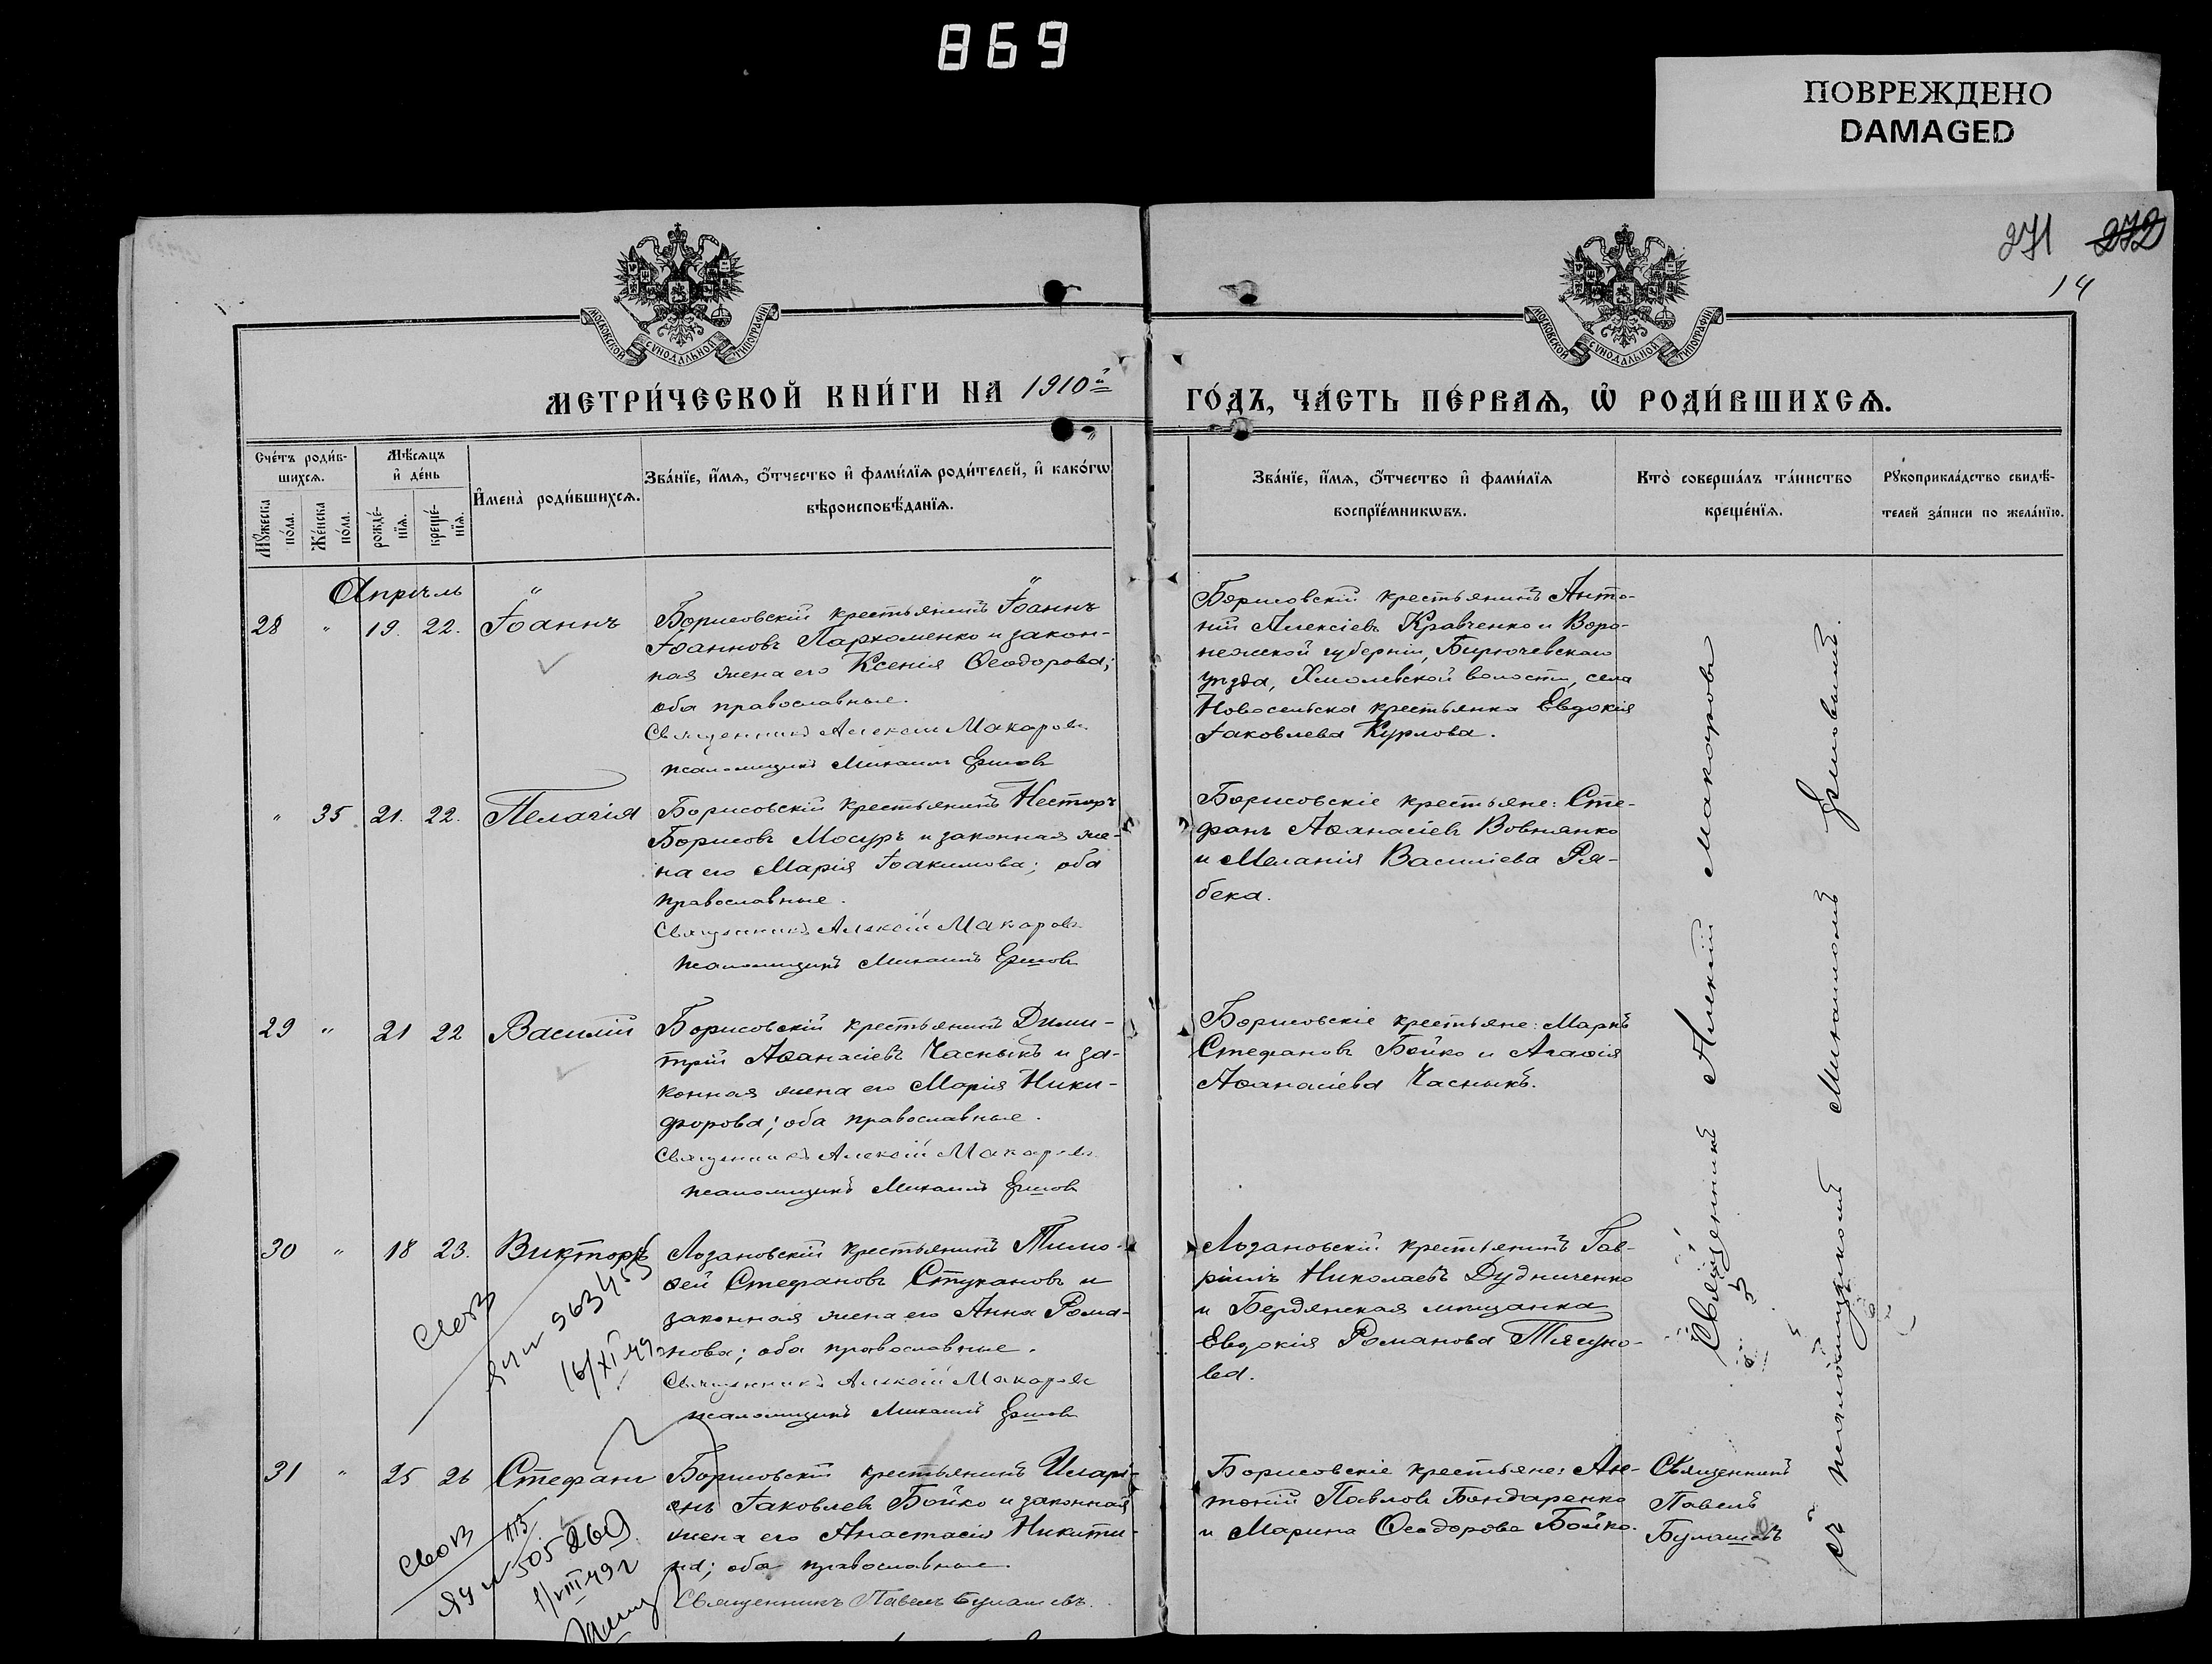 869
ПОВРЕЖДЕНО
DAMAGED
271 272
14
МОСКОВСКОЙ СУНОДАЛЬНОЙ ТИПОГРАФІИ
МОСКОВСКОЙ СУНОДАЛЬНОЙ ТИПОГРАФІИ
МЕТРИ́ЧЕСКОЙ КНИ́ГИ НА 1910й
ГО́ДЪ, ЧА́СТЬ ПЕ́РВАѦ, Ѡ҆ РОДИ́ВШИХСѦ.
Сче́тъ роди́в-
шихсѧ.
Мꙋ́жеска по́ла.
Же́нска по́ла.
Мѣ́сѧцъ
и҆ де́нь
рожде́-
нїѧ.
креще́-
нїѧ.
И҆мена̀ роди́вшихсѧ.
Зва́нїе, и҆́мѧ, ѻ҆́тчество и҆ фами́лїѧ роди́телей, и҆ како́гѡ
вѣроисповѣ́данїѧ.
Зва́нїе, и҆́мѧ, ѻ҆́тчество и҆ фами́лїѧ
воспрїе́мникѡвъ.
Кто̀ соверша́лъ та́инство
креще́нїѧ.
Рꙋкоприкла́дство свидѣ́-
телей за́писи по жела́нїю.
Апрѣль
28 " 19. 22. Іоаннъ
Борисовскій крестьянинъ Іоаннъ
Іоанновъ Пархоменко и закон-
ная жена его Ксенія Ѳеодорова;
оба православные.
Священникъ Алексій Макаровъ
псаломщикъ Михаилъ Ершовъ
Борисовскій крестьянинъ Анто-
ній Алексіевъ Кравченко и Воро-
нежской губерніи, Бирюченскаго
уѣзда, волости, села
Новосельска крестьянка Евдокія
Іаковлева Курлова.
" 35 21. 22. Пелагія
Борисовскій крестьянинъ Несторъ
Борисовъ Мосуръ и законная же-
на его Марія Іоакимова; оба
православные.
Священникъ Алексій Макаровъ
псаломщикъ Михаилъ Ершовъ
Борисовскіе крестьяне: Сте-
фанъ Аѳанасіевъ Вовнянко
и Меланія Васильева Ря-
бека.
29 " 21 22 Василій
Борисовскій крестьянинъ Дими-
трій Аѳанасіевъ Часныкъ и за-
конная жена его Марія Ники-
форова; оба православные.
Священникъ Алексій Макаровъ
псаломщикъ Михаилъ Ершовъ
Борисовскіе крестьяне: Маркъ
Стефановъ Бойко и Агаѳія
Аѳанасіева Часныкъ.
30 " 18 23. Викторъ
Лозановскій крестьянинъ Тимо-
ѳей Стефановъ Стукановъ и
законная жена его Анна Рома-
нова; оба православные.
Священникъ Алексій Макаровъ
псаломщикъ Михаилъ Ершовъ
Лозановскій крестьянинъ Гав-
ріилъ Николаевъ Дудниченко
и Бердянская мѣщанка
Евдокія Романова Тягуно-
ва.
16/XI 49
31 " 25 26 Стефанъ
Борисовскій крестьянинъ Иларі-
онъ Іаковлевъ Бойко и законная
жена его Анастасія Никити-
на; оба православные.
Священникъ Павелъ Булашевъ.
505269
1/VIII 49 г
Борисовскіе крестьяне: Ан-
тоній Павловъ Бондаренко
и Марина Ѳеодорова Бойко.
Священникъ
Павелъ
Булашевъ
Священникъ Алексій Макаровъ
съ псаломщикомъ Михаиломъ Ершовымъ.